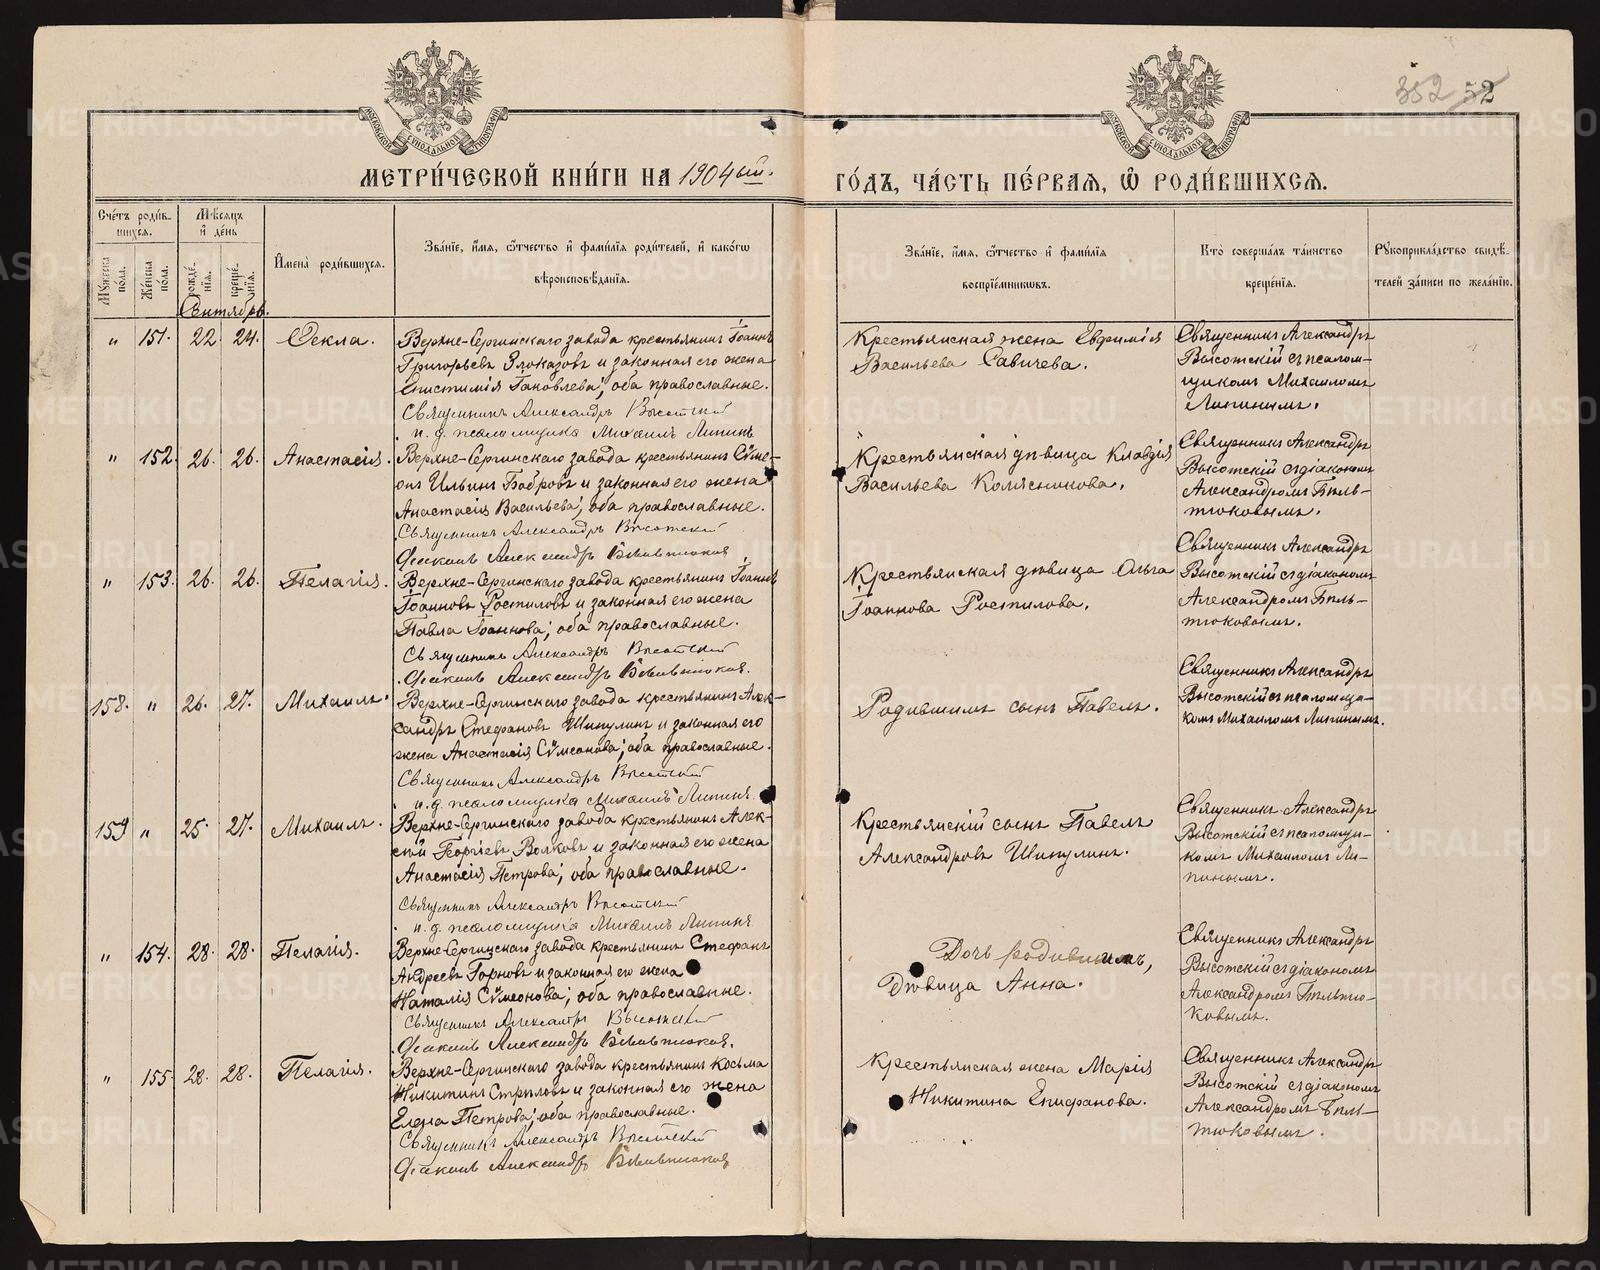 352 52
МОСКОВСКОЙ СѴНОДАЛЬНОЙ ТИПОГРАФІИ
МОСКОВСКОЙ СѴНОДАЛЬНОЙ ТИПОГРАФІИ
МЕТРИ́ЧЕСКОЙ КНИ́ГИ НА 1904ый. ГО́ДЪ, ЧА́СТЬ ПЕ́РВАѦ, Ѡ҆ РОДИ́ВШИХСѦ.
Сче́тъ роди́в-
шихсѧ.
Му́жеска по́ла.
Же́нска по́ла.
Мѣ́сѧцъ и҆ де́нь
рожде́-
нїѧ.
креще́-
нїѧ.
И҆мена̀ роди́вшихсѧ.
Зва́нїе, и҆́мѧ, ѻ҆́тчество и҆ фами́лїѧ роди́телей, и҆ како́гѡ
вѣроисповѣ́данїѧ.
Зва́нїе, и҆́мѧ, ѻ҆́тчество и҆ фами́лїѧ
воспрїе́мникѡвъ.
Кто̀ соверша́лъ та́инство
креще́нїѧ.
Рꙋкоприкла́дство свидѣ́-
телей за́писи по жела́нїю.
Сентябрь.
" 151. 22. 24. Ѳекла.
Верхне-Сергинскаго завода крестьянинъ Іоаннъ
Григорьевъ Злоказовъ и законная его жена
Епистимія Іаковлева; оба православные.
Священникъ Александръ Высотскій
и. д. псаломщика Михаилъ Липинъ
Крестьянская жена Евфимія
Васильева Савичева.
Священникъ Александръ
Высотскій съ псалом-
щикомъ Михаиломъ
Липинымъ.
" 152. 26. 26. Анастасія.
Верхне-Сергинскаго завода крестьянинъ Сѵме-
онъ Ильинъ Бобровъ и законная его жена
Анастасія Васильева; оба православные.
Священникъ Александръ Высотскій
Діаконъ Александръ Бѣльтюковъ
Крестьянская дѣвица Клавдія
Васильева Колясникова.
Священникъ Александръ
Высотскій съ діакономъ
Александромъ Бѣль-
тюковымъ.
" 153. 26. 26. Пелагія.
Верхне-Сергинскаго завода крестьянинъ Іоаннъ
Іоанновъ Ростиловъ и законная его жена
Павла Іоаннова; оба православные.
Священникъ Александръ Высотскій
Діаконъ Александръ Бѣльтюковъ.
Крестьянская дѣвица Ольга
Іоаннова Ростилова.
Священникъ Александръ
Высотскій съ діакономъ
Александромъ Бѣль-
тюковымъ.
158. " 26. 27. Михаилъ.
Верхне-Сергинскаго завода крестьянинъ Алек-
сандръ Стефановъ Шипулинъ и законная его
жена Анастасія Сѵмеонова; оба православные.
Священникъ Александръ Высотскій
и. д. псаломщика Михаилъ Липинъ.
Родившимъ сынъ Павелъ.
Священникъ Александръ
Высотскій съ псаломщи-
комъ Михаиломъ Липинымъ.
159 " 25. 27. Михаилъ.
Верхне-Сергинскаго завода крестьянинъ Алек-
сѣй Георгіевъ Волковъ и законная его жена
Анастасія Петрова; оба православные.
Священникъ Александръ Высотскій
и. д. псаломщика Михаилъ Липинъ
Крестьянскій сынъ Павелъ
Александровъ Шипулинъ.
Священникъ Александръ
Высотскій съ псаломщи-
комъ Михаиломъ Ли-
пинымъ.
" 154. 28. 28. Пелагія.
Верхне-Сергинскаго завода крестьянинъ Стефанъ
Андреевъ Горновъ и законная его жена
Наталія Сѵмеонова; оба православные.
Священникъ Александръ Высотскій
Діаконъ Александръ Бѣльтюковъ.
Дочь родившимъ,
Дѣвица Анна.
Священникъ Александръ
Высотскій съ діакономъ
Александромъ Бѣльтю-
ковымъ.
" 155. 28. 28. Пелагія.
Верхне-Сергинскаго завода крестьянинъ Косьма
Никитинъ Стрѣловъ и законная его жена
Елена Петрова; оба православные.
Священникъ Александръ Высотскій
Діаконъ Александръ Бѣльтюковъ
Крестьянская жена Марія
Никитина Епифанова.
Священникъ Александръ
Высотскій съ діакономъ
Александромъ Бѣль-
тюковымъ.
METRIKI.GASO-URAL.RU